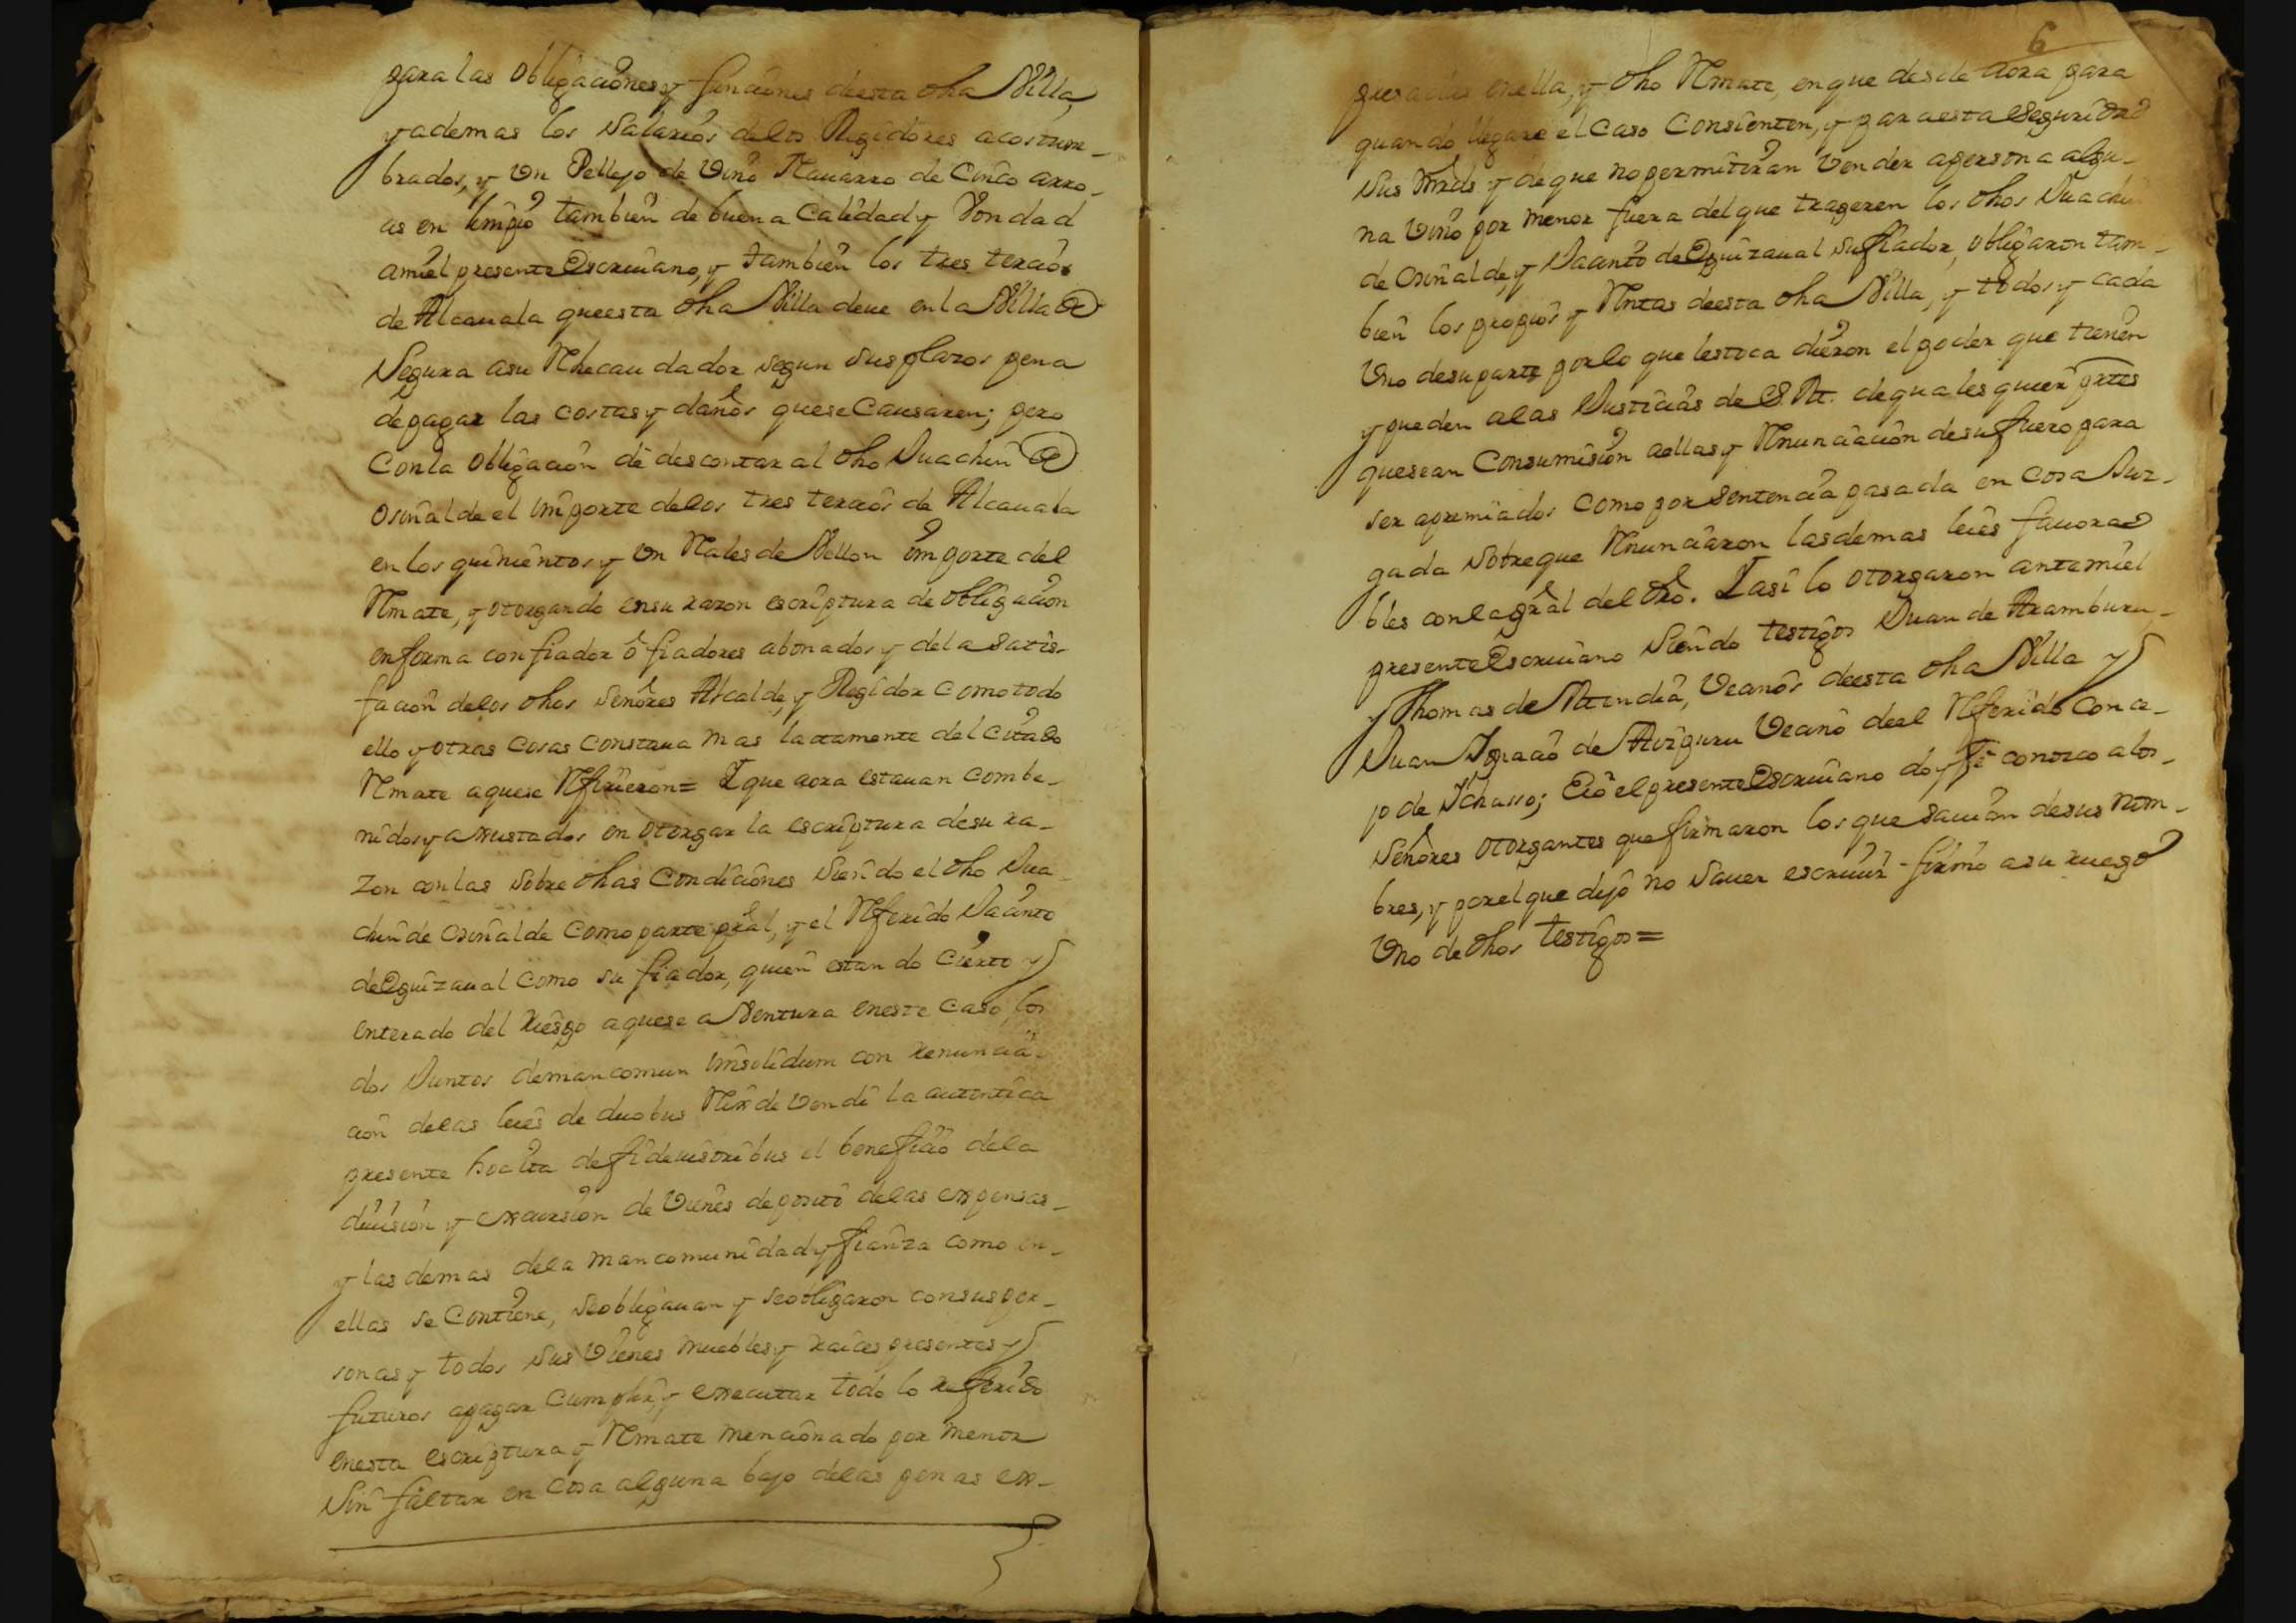 para las obligaciones y funciones deesta dha Villa,
y ademas los salarios delos Regidores acostum-
brados, y Un Pellejo de Vino Nauarro de Cinco arro-
as en limpio tambien de buena Calidad y Vondad
amiel presente Escriuano, y tambien los tres tercios
de Alcauala queesta dha Villa deue en la Villa de
Segura asu Rhecaudador segun sus plazos pena
de pagar las costas y daños quese Causaren; pero
Conla obligacion de descontar al dho Juachin de
Osinalde el importe delos tres tercios de Alcauala
en los quinientos y Un Rales de Vellon importe del
Rmate, y otorgando ensu razon escriptura de obligacion
enforma con fiador ô fiadores abonados y dela satis-
facion delos dhos señores Alcalde, y Regidor como todo
ello y otras cosas constaua mas lactamente del citado
Rmate aquese Rfirieron= Y que aora estauan combe-
nidos y a Justados en otorgar la escriptura desu ra-
zon con las sobre dhas Condiciones siendo el dho Jua-
chin de Osinalde como parte pral, y el Rferido Jacinto
de Eguizaual como su fiador, quien estando cierto y
enterado del riesgo aquese a Ventura eneste caso, los
dos Juntos demancomun imsolidum con renuncia-
cion delas leies de duobus Rex de Vendi la autentica
presente hocita de fideiusoribus el beneficio dela
diuision y excursion de Vienes deposito delas expensas-
y las demas dela mancomunidad y fianza como en-
ellas se Contiene, seobligauan y seobligaron consus per-
sonas y todos sus Vienes muebles y raices presentes y
futuros apagar Cumplir, y executar todo lo referido
enesta escriptura y Rmate mencionado por menor
sin faltar en cosa alguna bajo delas penas ex-
6
puesadas enella, y dho Rmate, en que desde aora para
quando llegare el caso Consienten, y para esta Seguridad
sus mrds y de que no permitiran Vender apersona algu-
na Vino por menor fuera del que trageren los dhos Juachin
de Osinalde, y Jacinto de Eguizaual su fiador, obligaron tam-
bien los propios y Rntas deesta dha Villa, y todos y cada
Uno desu parte por lo que lestoca dieron el poder que tienen
y pueden alas Justicias de S.M. de quales quier prtes
quesean Consumision aellas y Rnunciacion desu fuero para
ser apremiados como por sentencia pasada en cosa Juz-
gada sobreque Rnunciaron lasdemas leies fauora-
bles conla gral del dro. Y asi lo otorgaron antemiel
presente Escriuano siendo testigos Juan de Aramburu,
y Thomas de Mendia, Vecinos deesta dha Villa y
Juan Ignacio de Aizguru Vecino deel Rferido Conce-
jo de Ichasso; Eio el presente Escriuano doy fe conozco alos
señores otorgantes que firmaron los que sauian desus nom-
bres, y porel que dijo no sauer escriuir firmo asu ruego
Uno de dhos testigos=